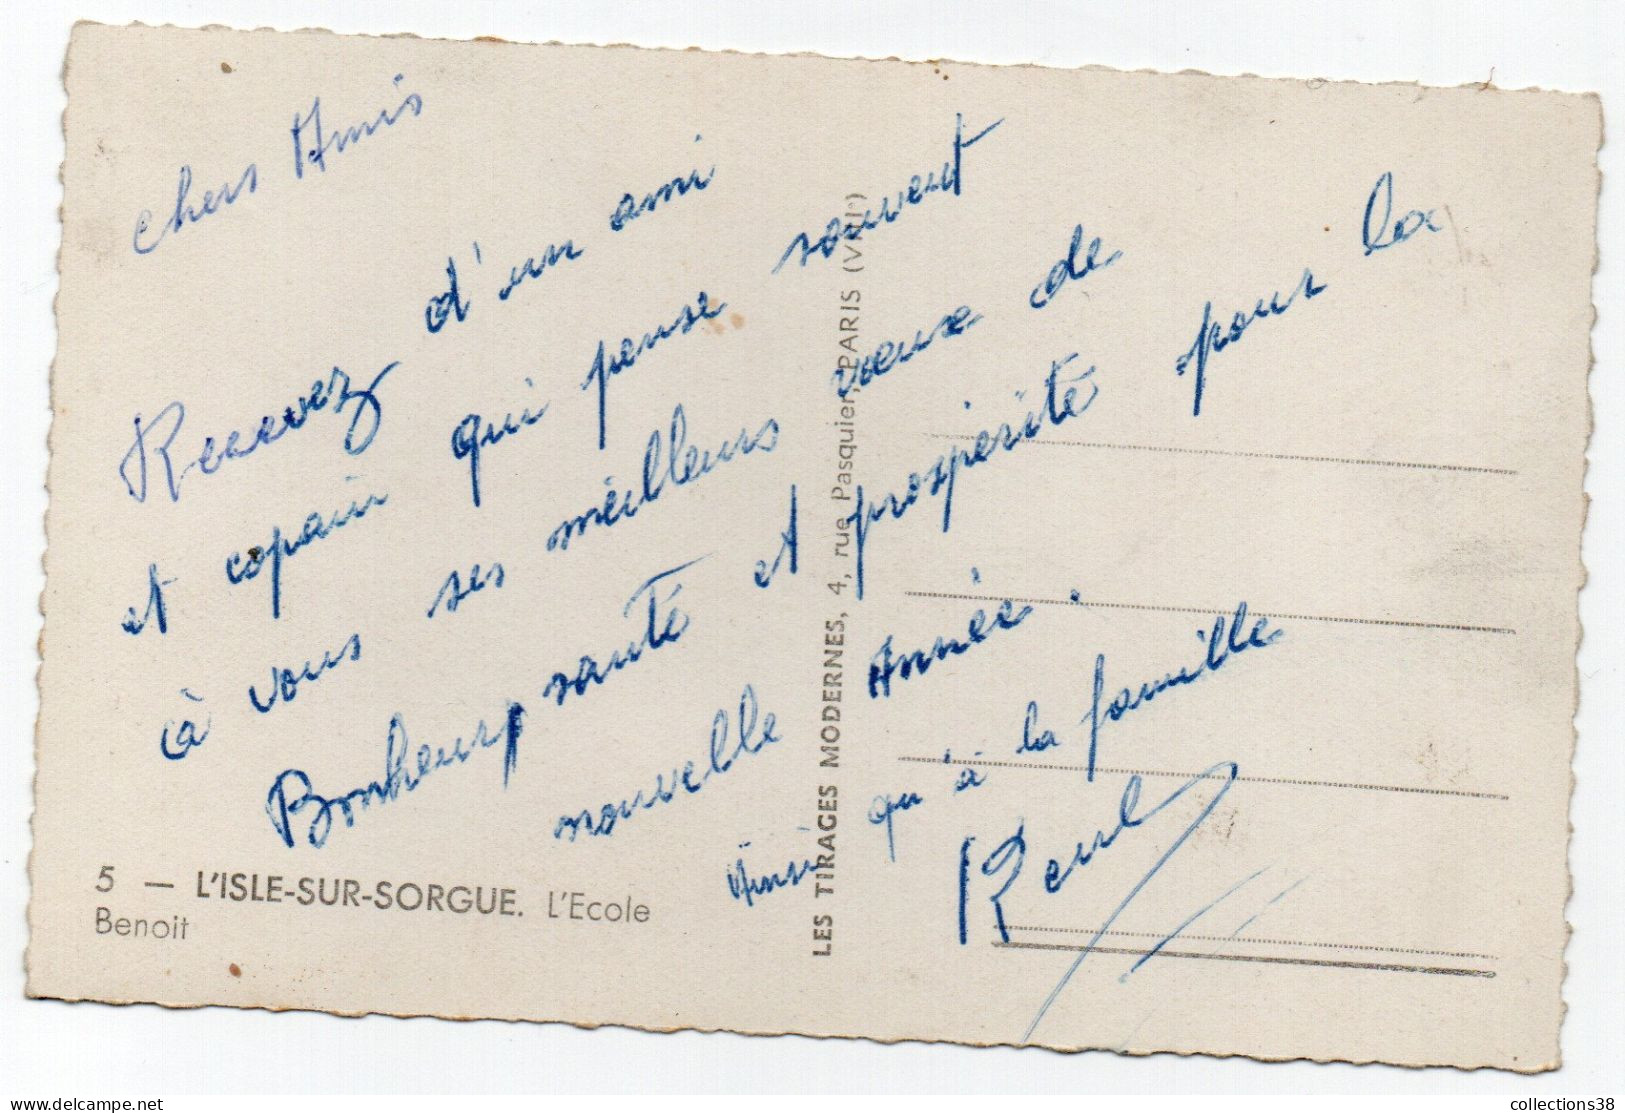 Chers Amis
Recevez d'un ami
et copain qui pense souvent
à vous ses meilleurs voeux de
Bonheur, santé et prospérité pour la
nouvelle Année.
Ainsi qu'à la famille
5 — L'ISLE-SUR-SORGUE. L'Ecole
Benoit
LES TIRAGES MODERNES, 4, rue Pasquier, PARIS (VIII°)
collections38